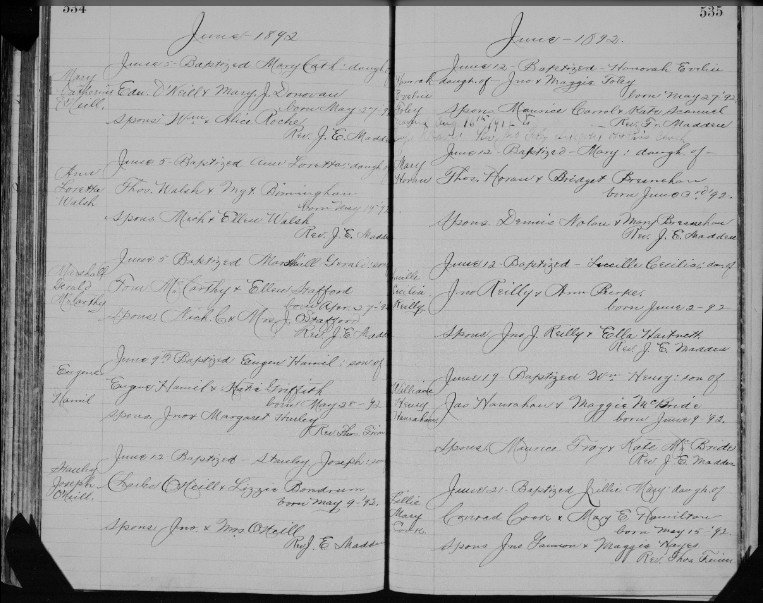 534
June - 1892
Mary Catherine O'Neill.
June 5 - Baptized Mary Cath: daugh of
Edw. O'Neill & Mary J. Donovan
born May 27 - 92
Spons Wm, Alice Roche
Rev. J. E. Madden
Ann Loretta Walsh
June 5 - Baptized Ann Loretta: daugh of
Thos. Walsh & My. Birmingham
born May 92
Spons Mich & Ellen Walsh
Rev. J. E. Madden
Gerald McCarthy
June 5 Baptized Gerald: son
McCarthy & Ellen
born Apr. 27 - 92
Spons Mich C & Mrs J.
Rev. J. E. Madden
Eugene Hamil
June 9th Baptized Eugene Hamil: son of
Eugene Hamil & Katie Griffith
born May 92
Spons Jno & Margaret
Rev. Thos.
Stanley Joseph O'Neill.
June 12 Baptized - Stanley Joseph: son
O'Neill & Lizzie Bondrum
born May 9 - '92.
Spons Jno. & Mrs O'Neill
Rev J. E Madden
535
June - 1892.
June 12 - Baptized - Honorah
daugh. of - Jno & Maggie Foley
born May 27 '92
Spons Maurice Carrol & Kate
Rev. Madden
Mary Horan
June 12 Baptized - Mary: daugh of -
Thos. Horan & Bridget Bresnehan
born June 3rd '92.
Spons. Dennis Nolan & Mary Bresnehan
Rev. J. E. Madden
Lucille Cecilia Reilly
June 12 - Baptized - Lucille Cecilia: dau of
Jno Reilly & Ann Burke,
born June 2 - 92
Spons Jno J Reilly & Ella Hartnett
Rev J. E. Madden
William Henry Hanrahan
June 19 - Baptized Wm Henry: son of
Jas Hanrahan & Maggie McBride
born June 9 '92.
Spons. Maurice & Kate McBride
Rev. J. E. Madden
Lillie Mary
June 21 - Baptized Lillie Mary daugh of
Conrad & Mary E Hamilton
born May 15 - '92
Spons Jno & Maggie Hayes
Rev. Thos